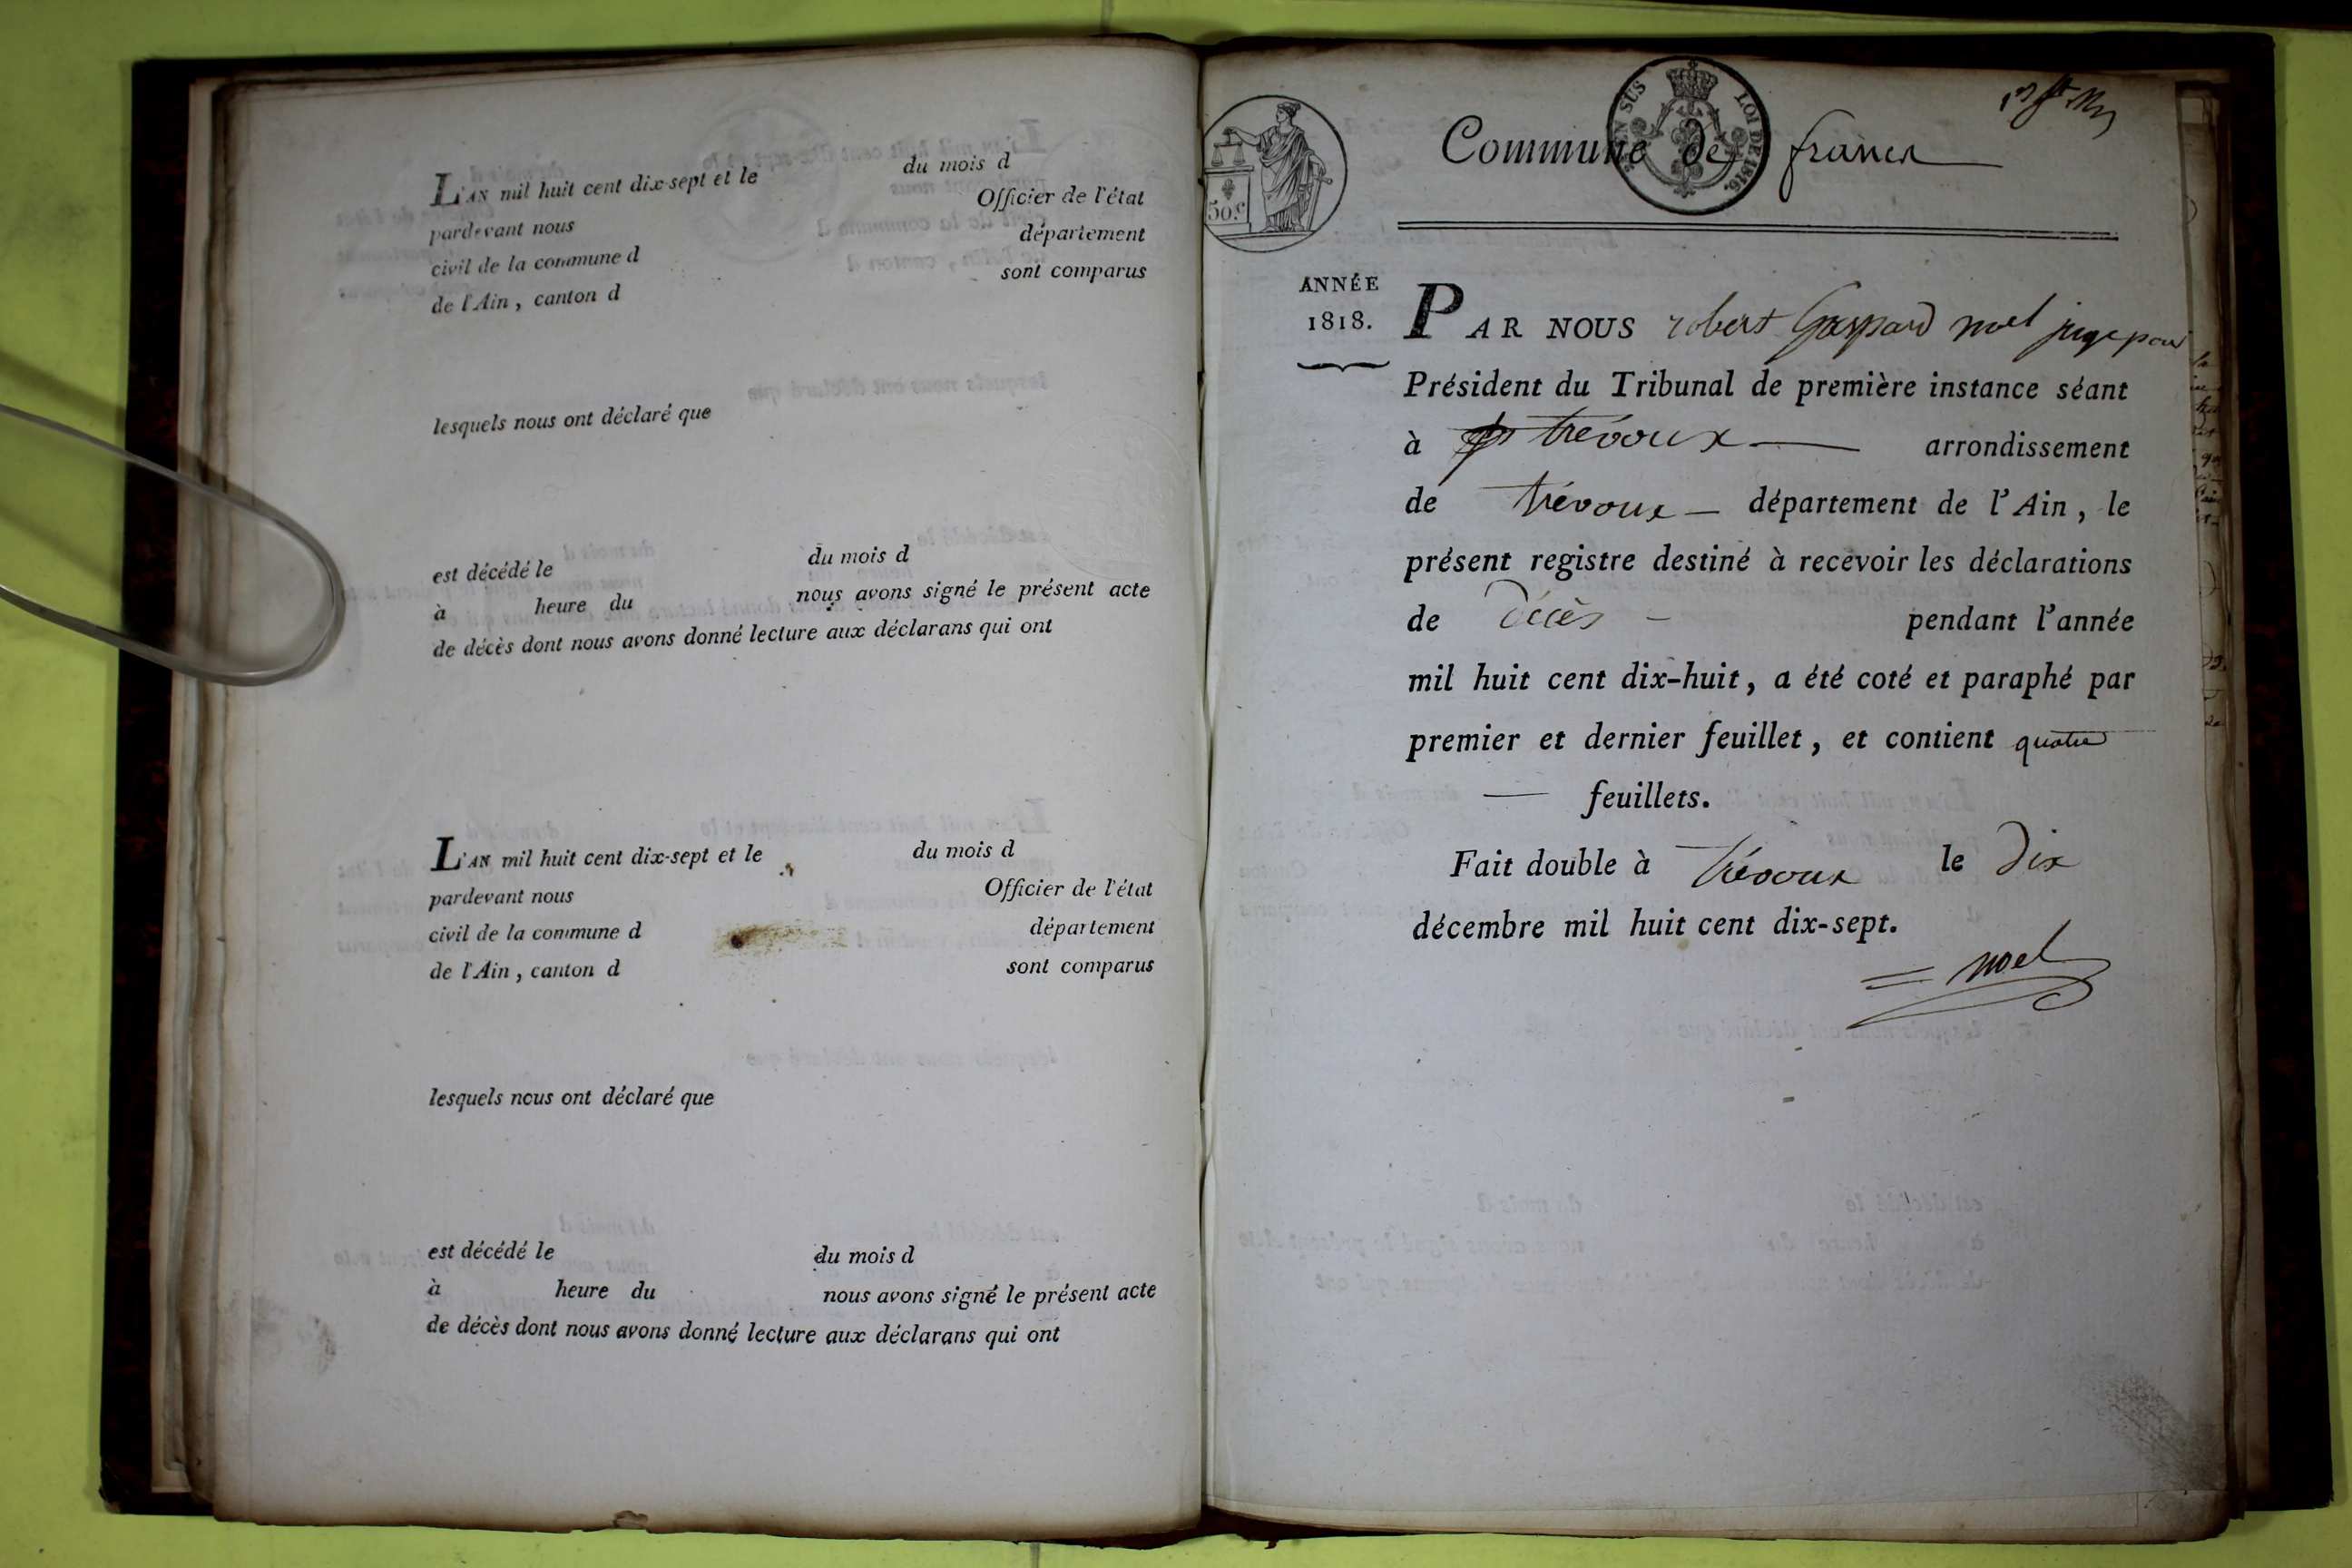 L'AN mil huit cent dix-sept et le du mois d
pardevant nous Officier de l'état
civil de la commune d département
de l'Ain, canton d sont comparus
lesquels nous ont déclaré que
est décédé le du mois d
à heure du nous avons signé le présent acte
de décès dont nous avons donné lecture aux déclarans qui ont
L'AN mil huit cent dix-sept et le du mois d
pardevant nous Officier de l'état
civil de la commune d département
de l'Ain, canton d sont comparus
lesquels nous ont déclaré que
est décédé le du mois d
à heure du nous avons signé le présent acte
de décès dont nous avons donné lecture aux déclarans qui ont
50 c
EN SUS LOI DE 1816.
Commune de
ANNÉE
1818.
PAR NOUS robert Gaspard noel juge pour
Président du Tribunal de première instance séant
à trévoux arrondissement
de trévoux département de l'Ain, le
présent registre destiné à recevoir les déclarations
de décès pendant l'année
mil huit cent dix-huit, a été coté et paraphé par
premier et dernier feuillet, et contient quatre
feuillets.
Fait double à trévoux le dix
décembre mil huit cent dix-sept.
noel